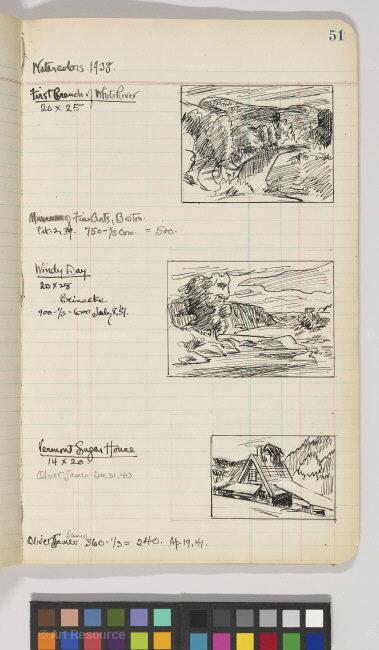 51
Watercolors 1938.
First Branch of White River
20 x 25
Museum of Fine Arts, Boston.
Feb. 2, 39. 750 - 1/3 com. = 500.
Windy Day
20 x 28
Beinecke
900 - 1/3 - 600 July 8, 51.
Vermont Sugar House
14 x 20
Oliver James - Dec 31, 40
James
Oliver James. 360 - 1/3 = 240. Ap 19, 41.
© Art Resource